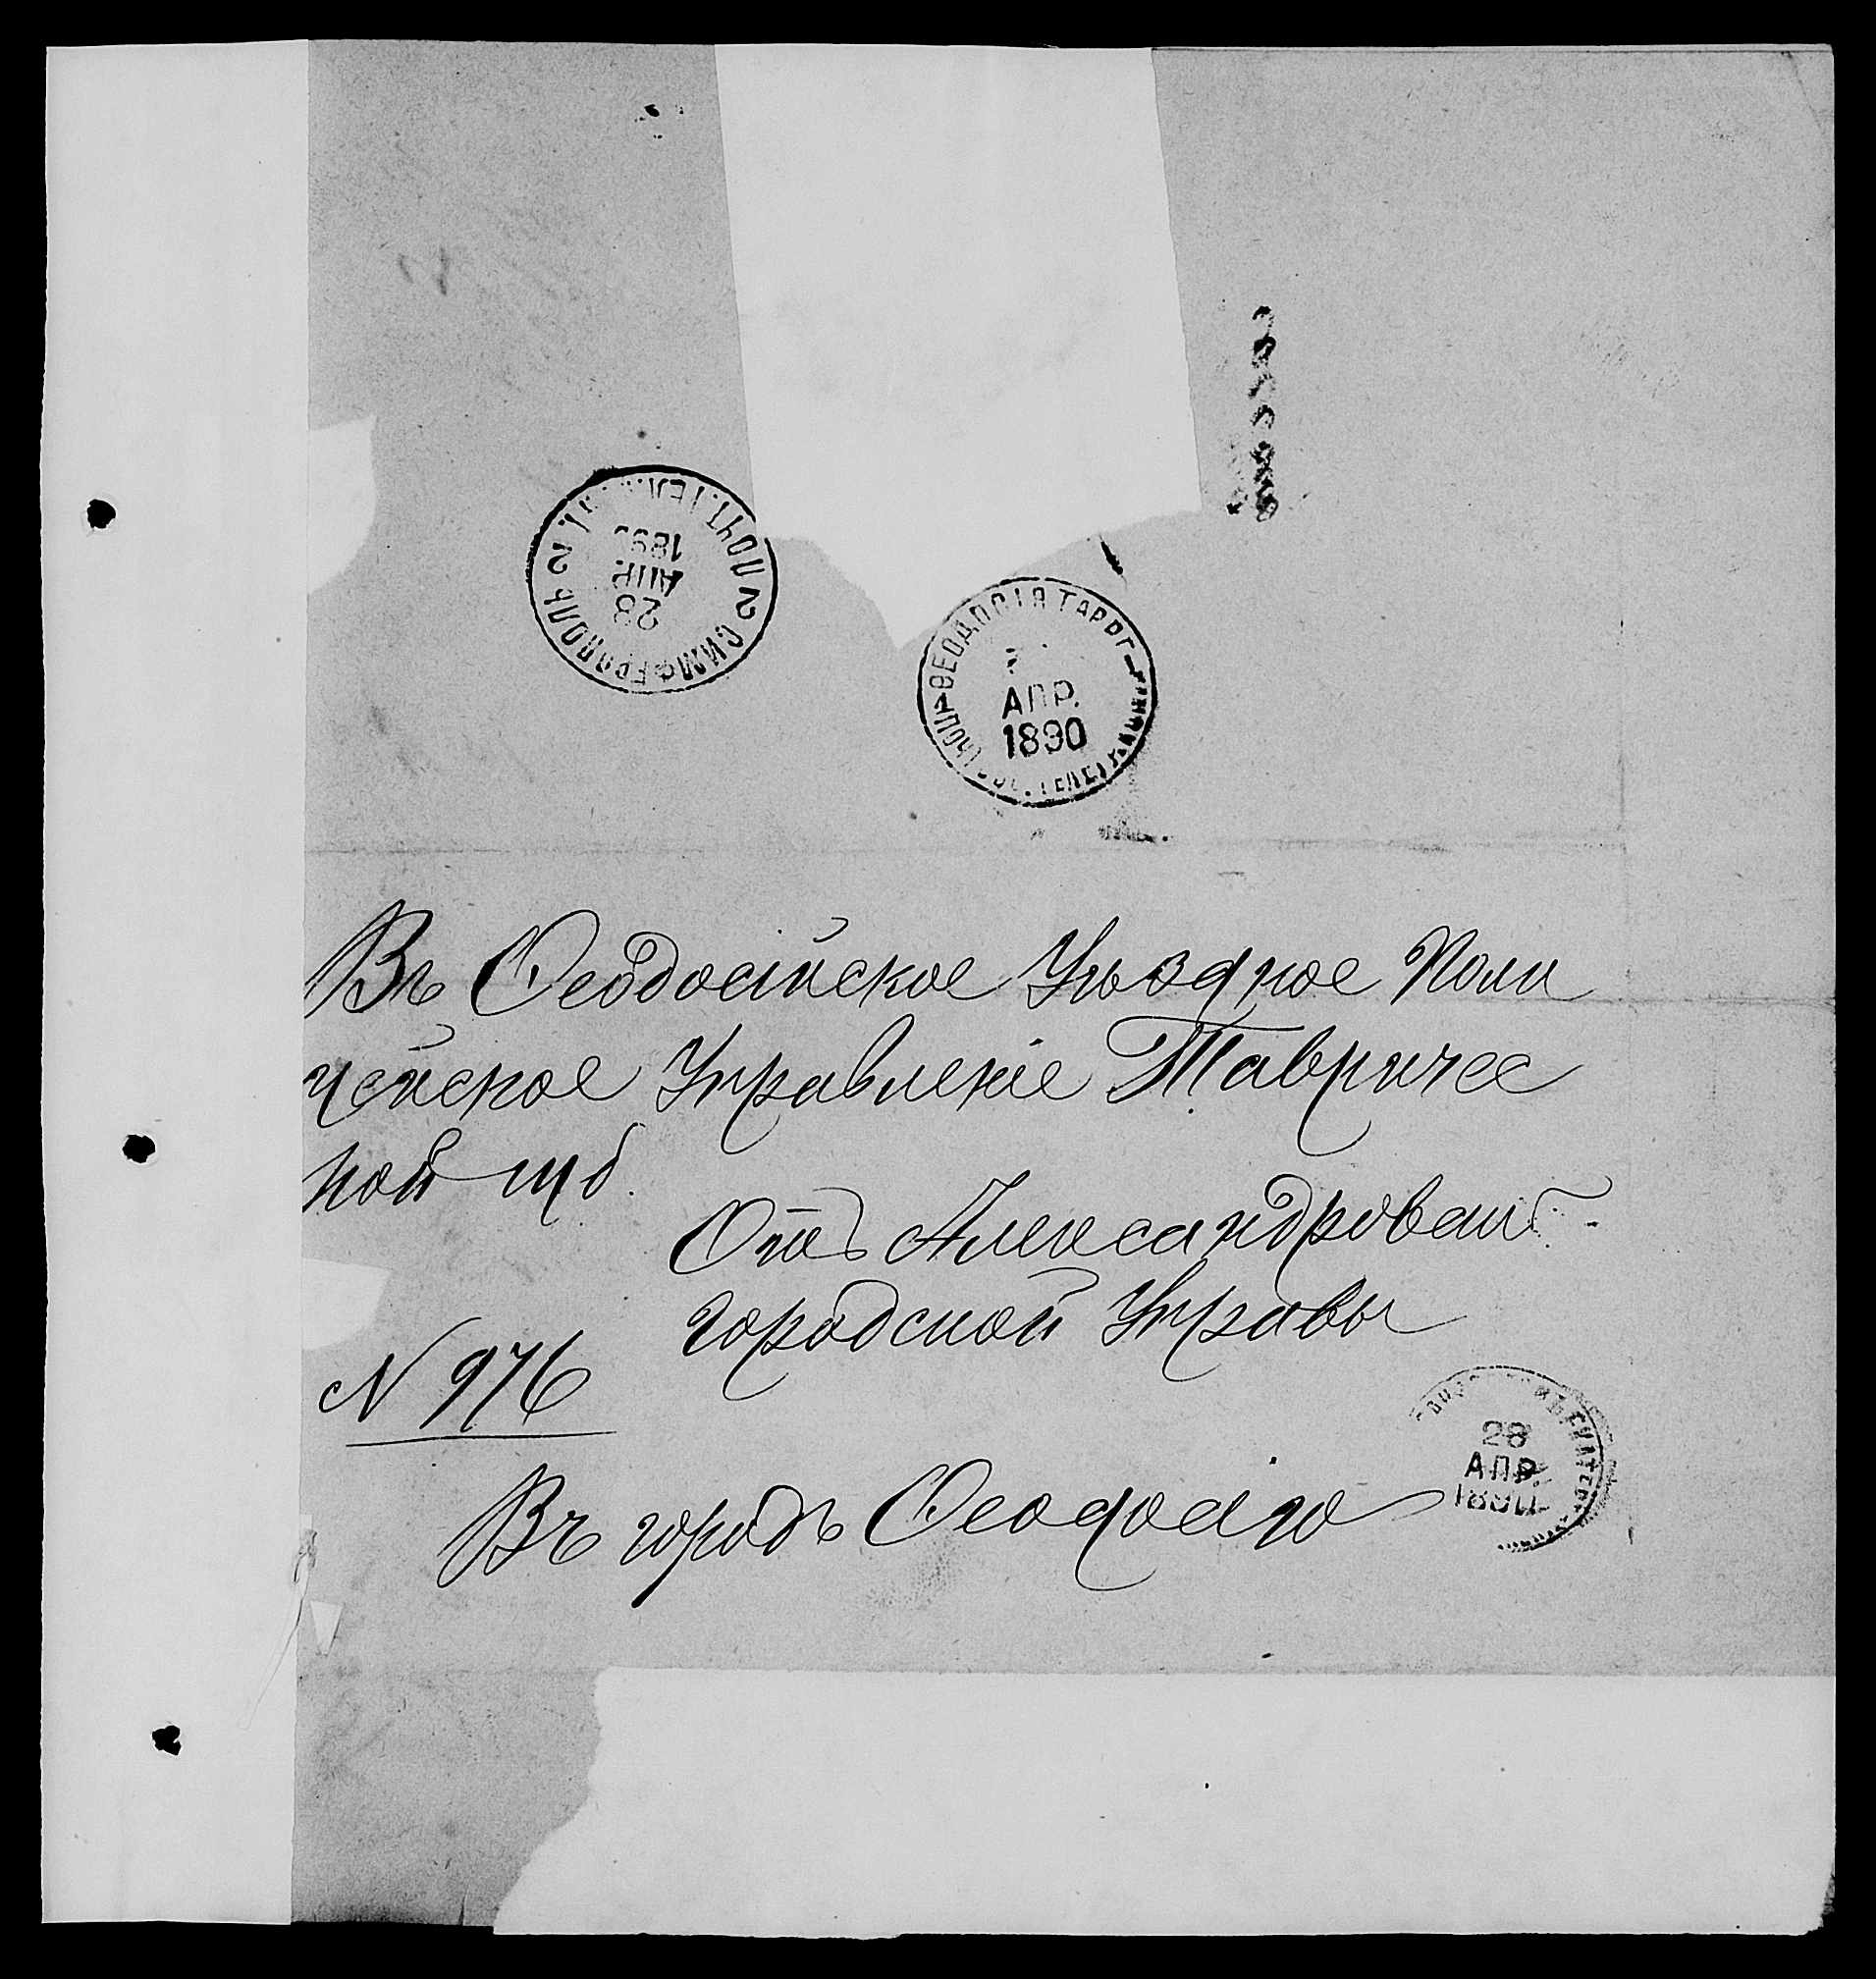 2 СИМФЕРОПОЛЬ 2 ПОЧТ. ТЕЛ.
28
АПР.
189
ѲЕОДОСІЯ ТАВР. Г.
АПР.
1890
Въ Ѳеодосійское Уѣздное Поли
цейское Управленіе Тавричес
кой губ.
Отъ Александровск.
городской Управы
N 976
28
АПР.
1890
Въ городъ Ѳеодосію